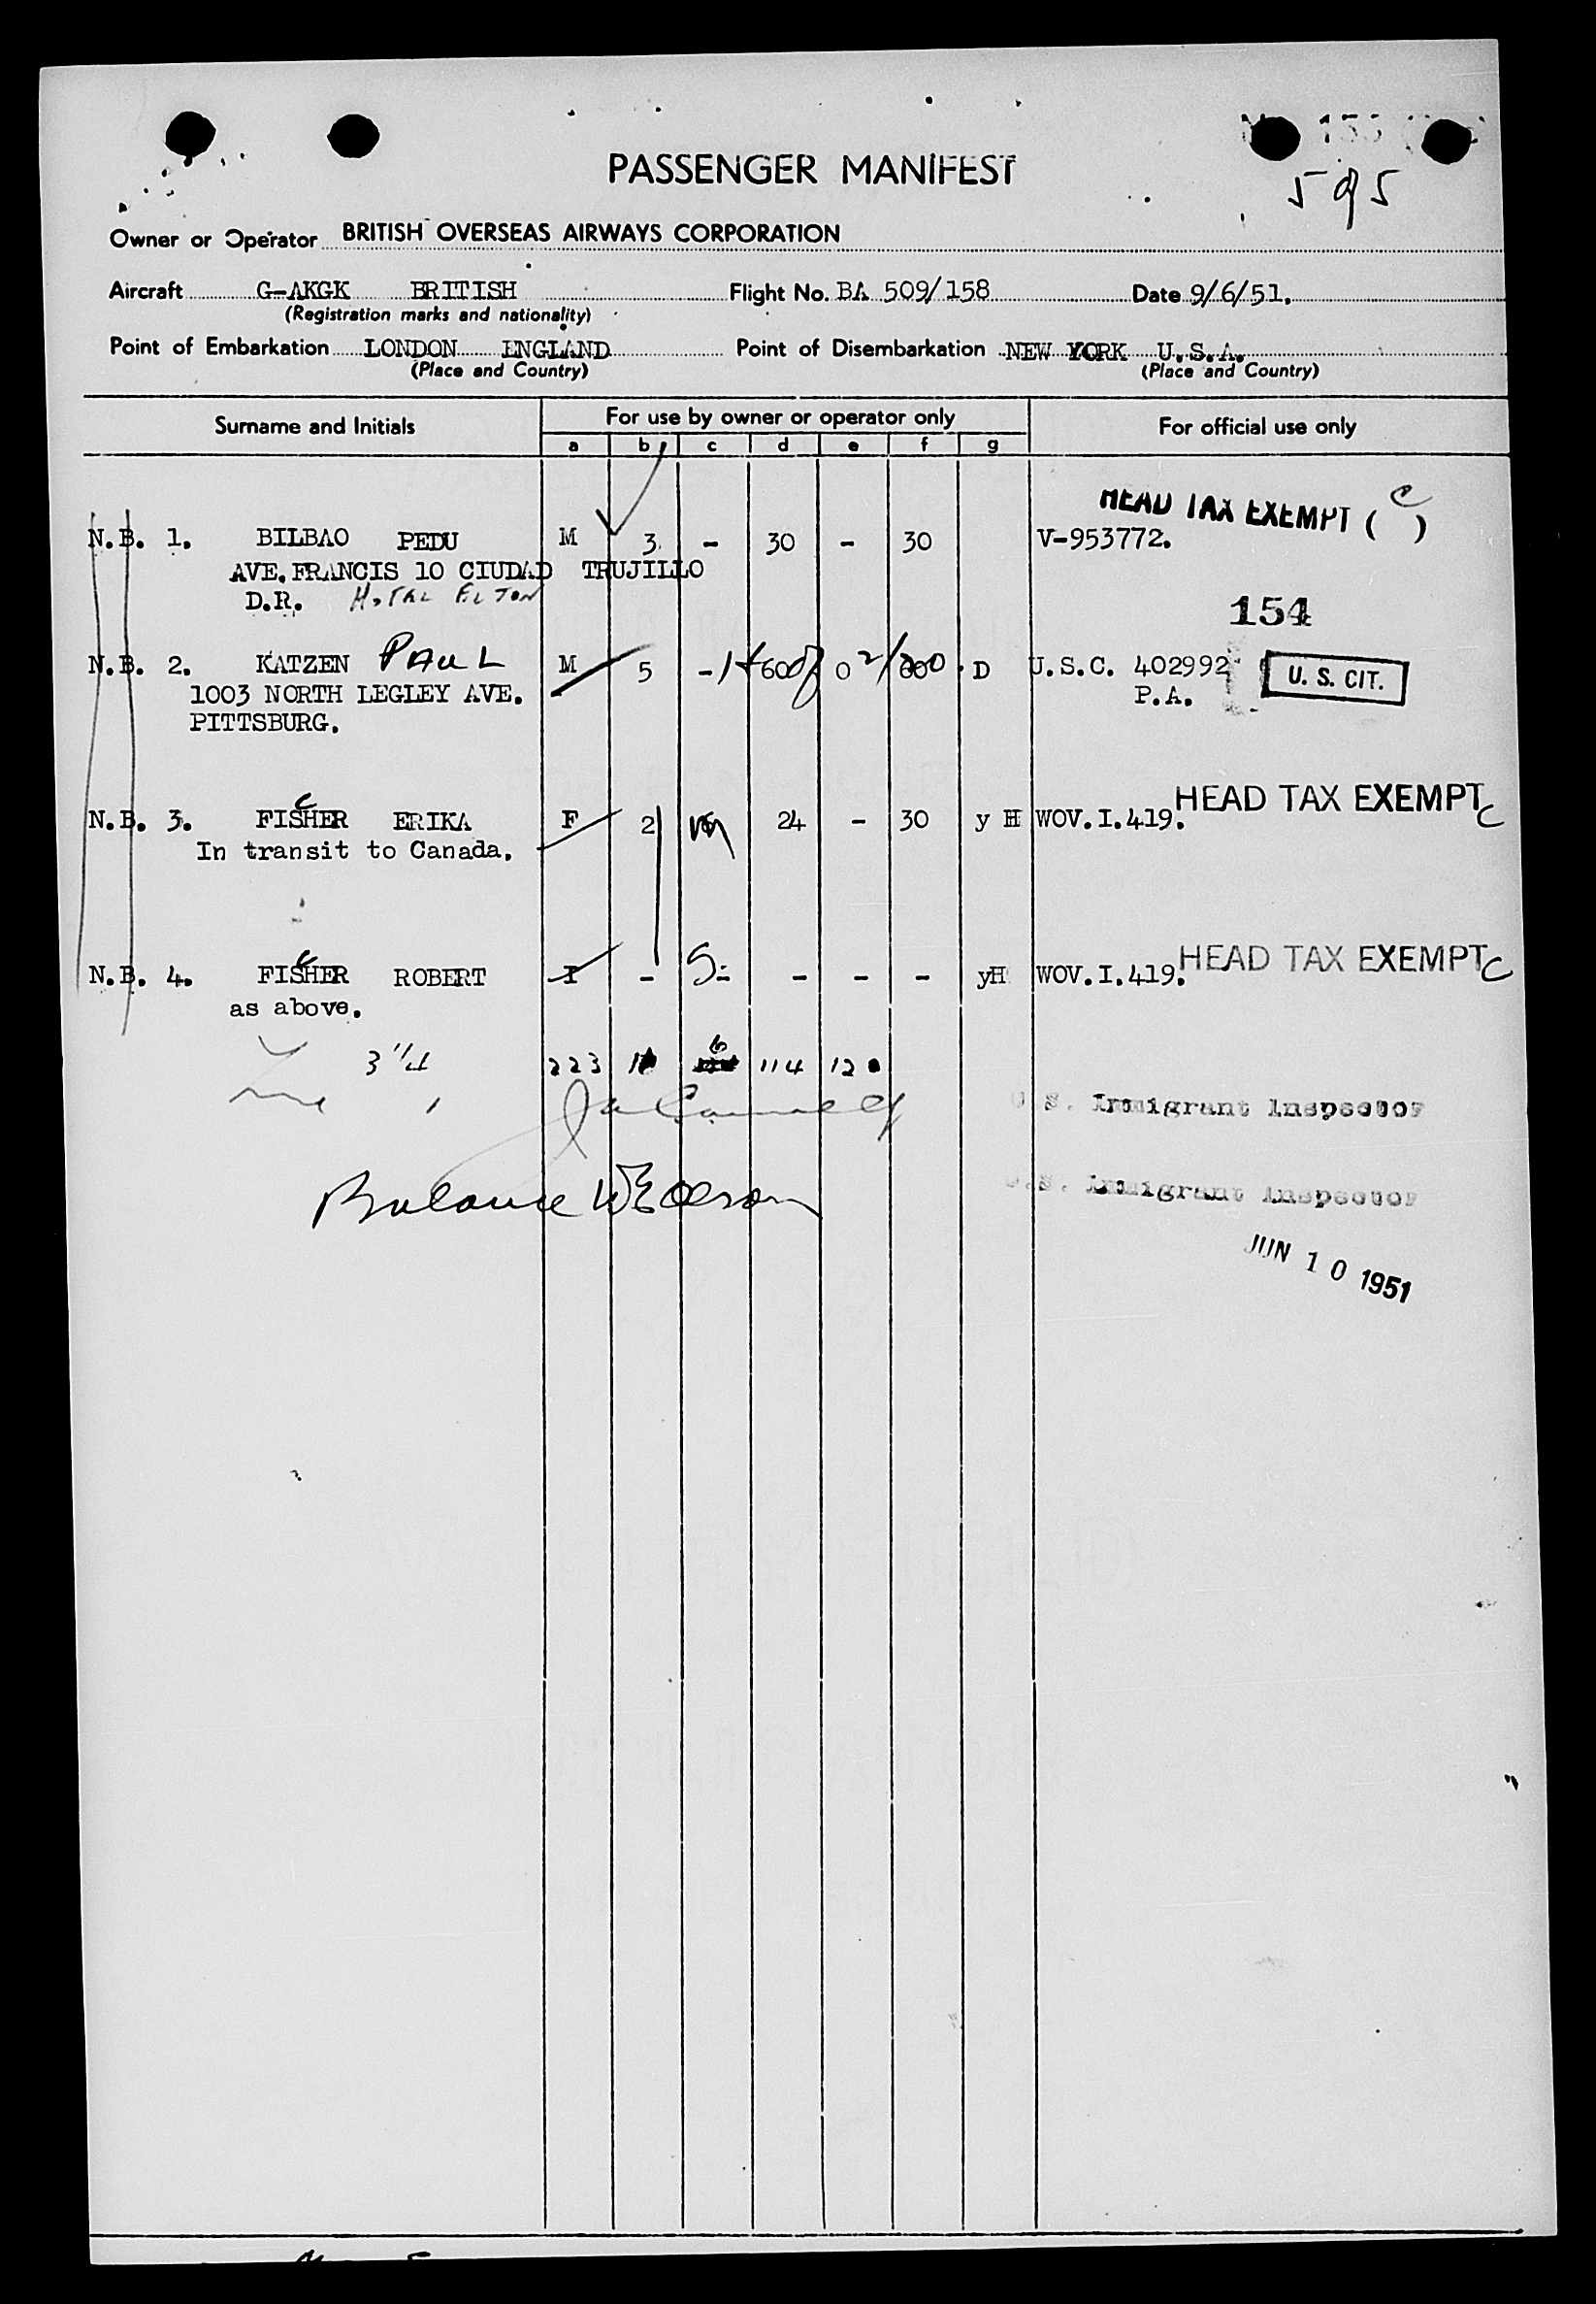 PASSENGER MANIFEST
5 of 5
Owner or Operator BRITISH OVERSEAS AIRWAYS CORPORATION
Aircraft G-AKGK BRITISH Flight No. BA 509/158 Date 9/6/51.
(Registration marks and nationality)
Point of Embarkation LONDON ENGLAND Point of Disembarkation NEW YORK U.S.A.
(Place and Country) (Place and Country)
Surname and Initials For use by owner or operator only For official use only
a b c d e f g
HEAD TAX EXEMPT ( C )
N.B. 1. BILBAO PEDU M 3. - 30 - 30 V-953772.
AVE. FRANCIS 10 CIUDAD TRUJILLO
D.R.
154
N.B. 2. KATZEN PAUL M 5 - 600 0 D U.S.C. 402992 U. S. CIT.
1003 NORTH LEGLEY AVE. P.A.
PITTSBURG.
HEAD TAX EXEMPT C
N.B. 3. FISHER ERIKA F 2 24 - 30 y H WOV.I.419.
In transit to Canada.
HEAD TAX EXEMPT C
N.B. 4. FISHER ROBERT I - - - - - yH WOV.I.419.
as above.
223 6 114
U.S. Immigrant Inspector
Balance
U.S. Immigrant Inspector
JUN 10 1951